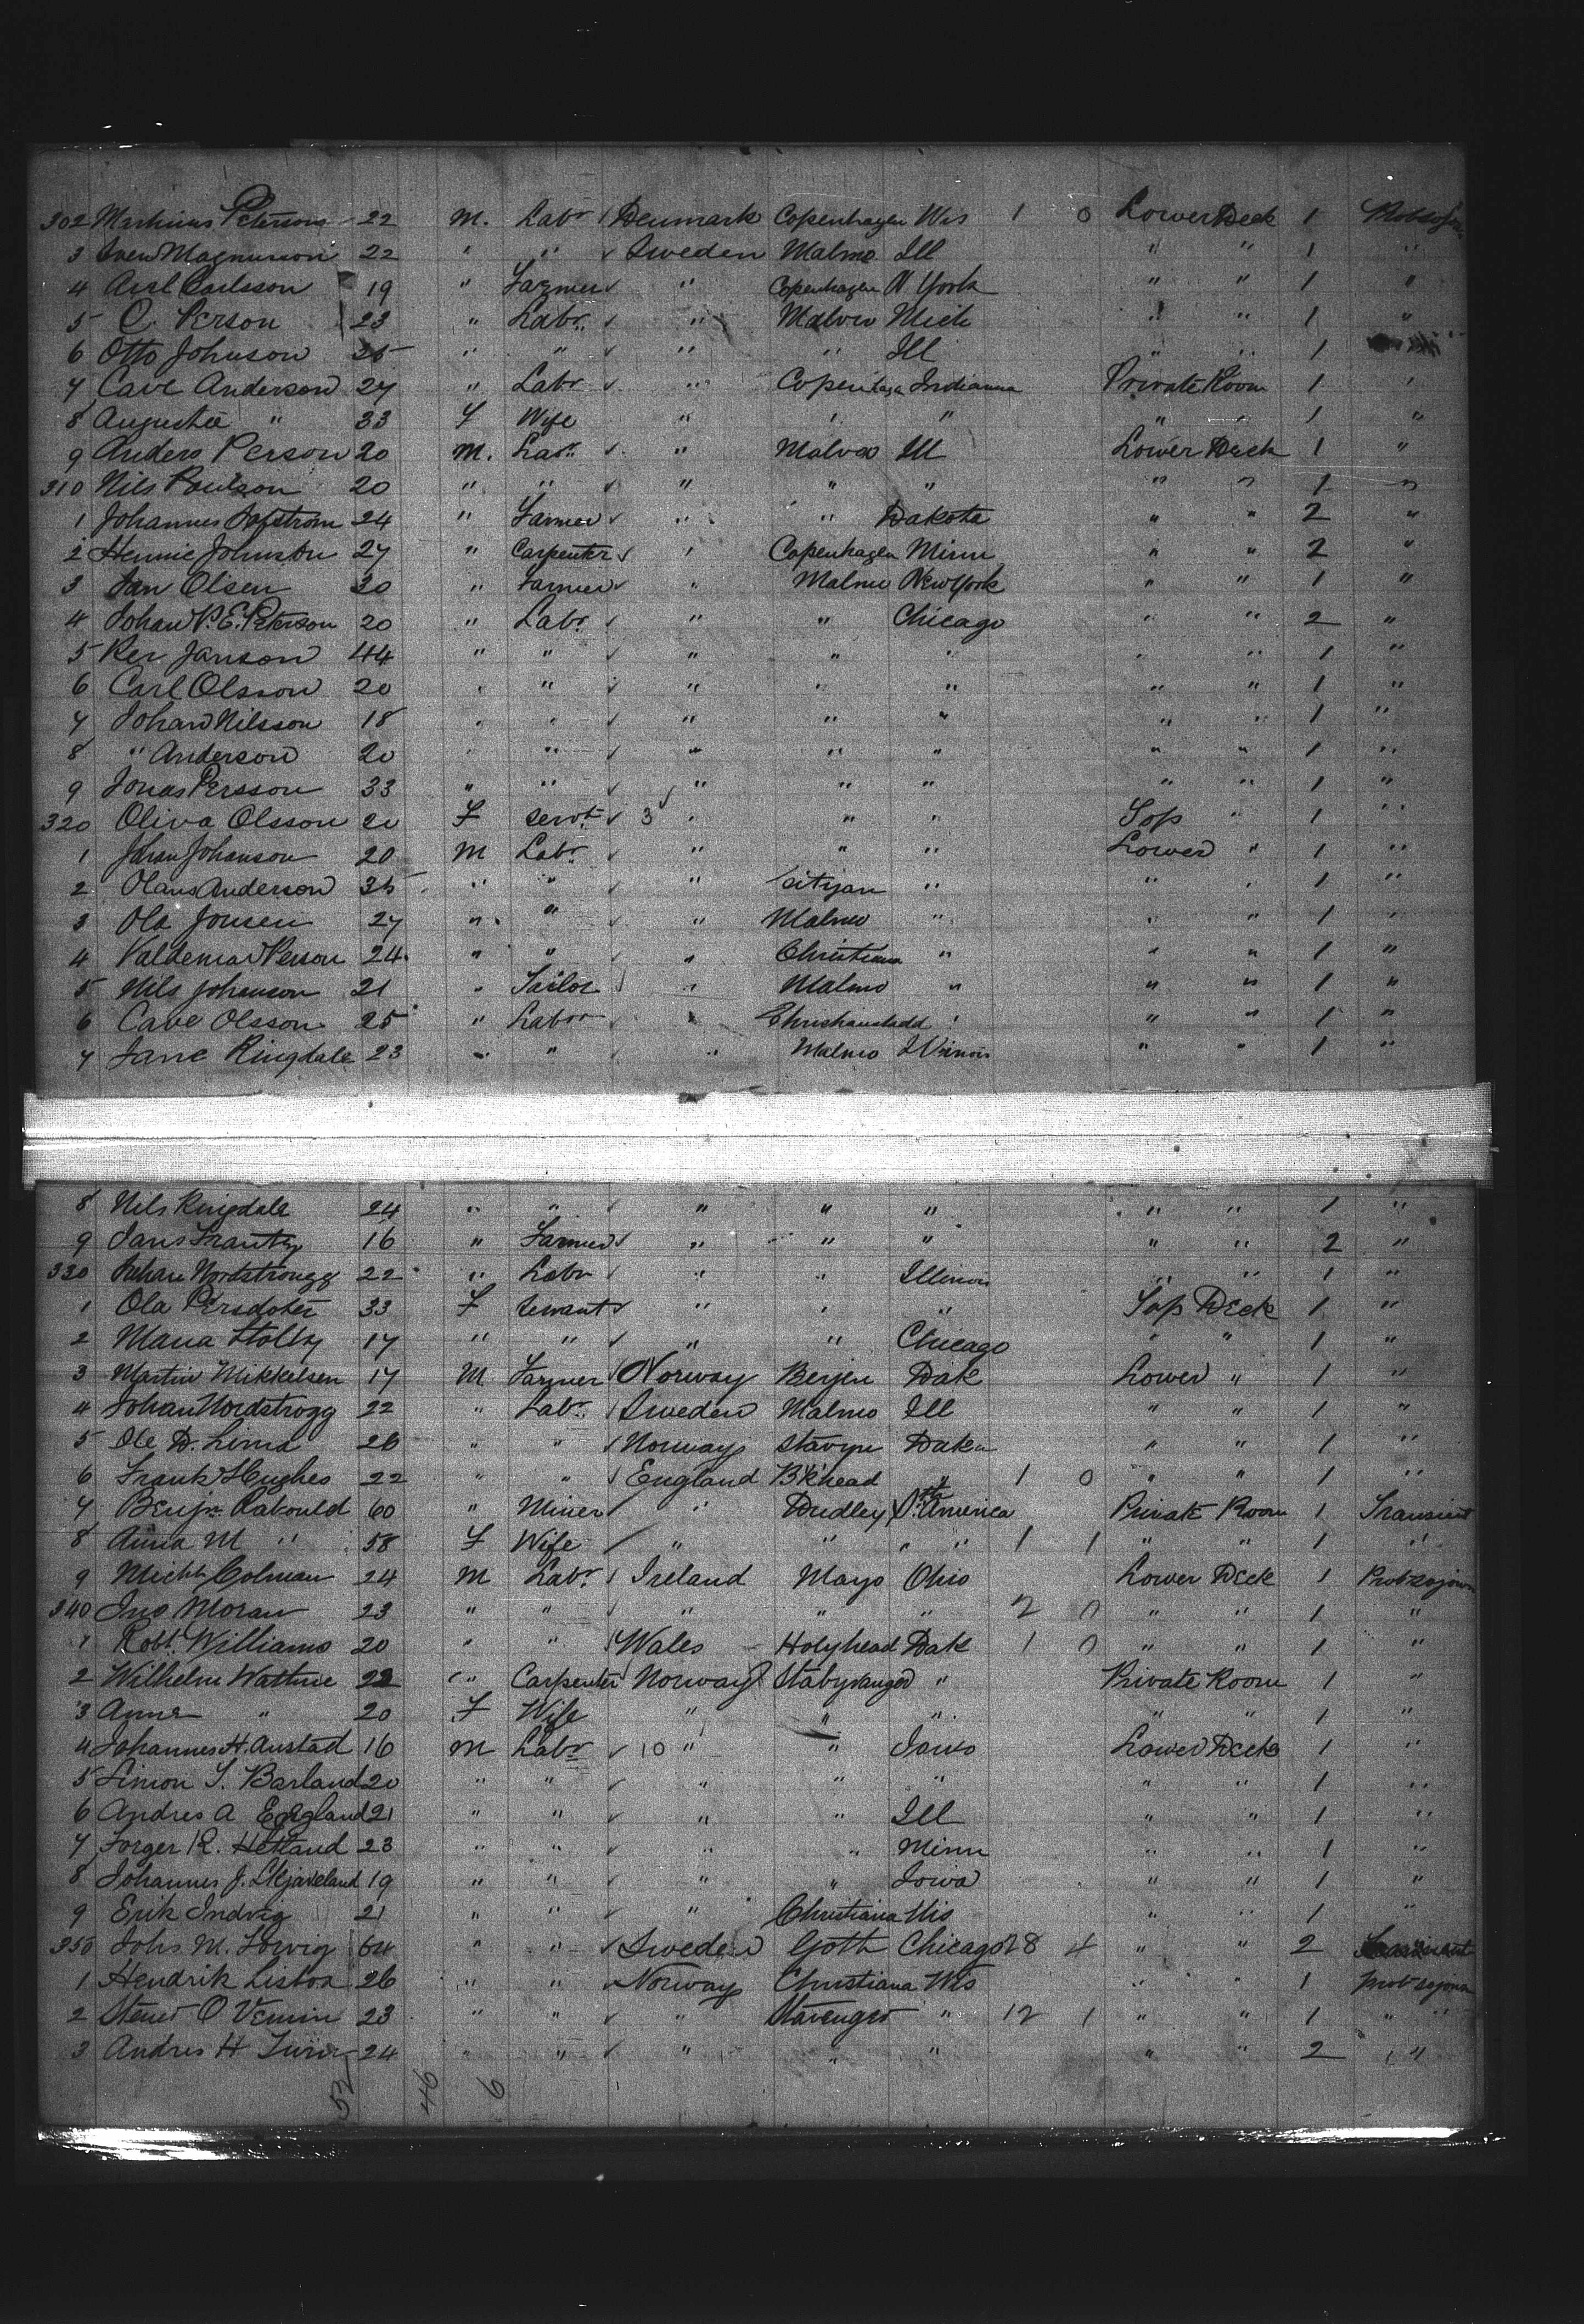 302 Peterson 22 M. Labr Denmark Copenhagen Wis 1 0 Lower Deck 1
3 Sven Magnuson 22 " " Sweden Malmo Ill " " 1 "
4 Axel Carlsson 19 " Farmer " Copenhagen N York " " 1 "
5 C. Person 23 " Labr " Malmo Mich " " 1 "
6 Otto Johnson 25 " " " " Ill " " 1
7 Cave Anderson 27 " Labr " Copenhagen Indianna Private Room 1 "
8 Augusta " 33 F Wife " " " " " 1 "
9 Anders Person 20 M. Labr " Malmo Ill Lower Deck 1 "
310 Nils Poulson 20 " " " " " " " 1 "
1 Johannes 24 " Farmer " " Dakota " " 2 "
2 Hennie Johnston 27 " Carpenter " Copenhagen Minn " " 2 "
3 Jan Olsen 30 " Farmer " Malmo New York " " 1 "
4 Johan P. E. Peterson 20 " Labr " " Chicago " " 2 "
5 Per Janson 44 " " " " " " " 1 "
6 Carl Olsson 20 " " " " " " " 1 "
7 Johan Nilsson 18 " " " " " " " 1 "
8 " Anderson 20 " " " " " " " 1 "
9 Jonas Persson 33 " " " " " " " 1 "
320 Oliva Olsson 20 F Servt 3 " " " Top " 1 "
1 Johan Johanson 20 M Labr " " " Lower " 1 "
2 Olaus Anderson 35 " " " " " " 1 "
3 Ola Jonsen 27 " " " Malmo " " " 1 "
4 Valdemar Person 24 " " " Christiana " " " 1 "
5 Nils Johanson 21 " Tailor " Malmo " " " 1 "
6 Cave Olsson 25 " Labor " Christianstadd " " " 1 "
7 Jane Ringdale 23 " " " Malmo Illinois " " 1 "
8 Nils Ringdale 24 " " " " " " " 1 "
9 Jans Frantz 16 " Farmer " " " " " 2 "
330 Johan Nordstrogg 22 " Labr " " Illinois " " 1 "
1 Ola Persdoter 33 F Servant " " " Top Deck 1 "
2 Maria Stoltz 17 " " " " Chicago " " 1 "
3 Martin Mikkelsen 17 M Farmer Norway Berjen Dak Lower " 1 "
4 Johan Nordstrogg 22 " Labr Sweden Malmo Ill " " 1 "
5 Ole D. Lima 26 " " Norway Dak " " 1 "
6 Frank Hughes 22 " " England Bk'head " 1 0 " " 1 "
7 Benjn 60 " Miner " Dudley America Private Room 1 Transient
8 Anna M " 58 F Wife " " " " 1 1 " " 1 "
9 Michl Colman 24 M Labr Ireland Mayo Ohio Lower Deck 1
340 Jno Moran 23 " " " " " 2 0 " " 1 "
1 Robt Williams 20 " " Wales Holyhead Dak 1 0 " " 1 "
2 Wilhelm Wathne 22 " Carpenter Norway " Private Room 1 "
3 Anna " 20 F Wife " " " " " 1 "
4 Johannes H. Austad 16 M Labr 10 " " Iowo Lower Deck 1 "
5 Simon T. Barland 20 " " " " " " " 1 "
6 Andres A Eagland 21 " " " " Ill " " 1 "
7 Torger R. Hetland 23 " " " " Minn " " 1 "
8 Johannes J. Skjaveland 19 " " " " Iowa " " 1 "
9 Erik Indvig 21 " " " Christiana Wis " " 1 "
350 Johs. M. 64 " " Sweden Goth Chicago 28 4 " " 2
1 Hendrik 26 " " Norway Christiana Wis " " 1
2 O 23 " " " Stavenger " 12 1 " " 1 " "
3 Andres H 24 " " " " " " " 2 " "
52 46 6